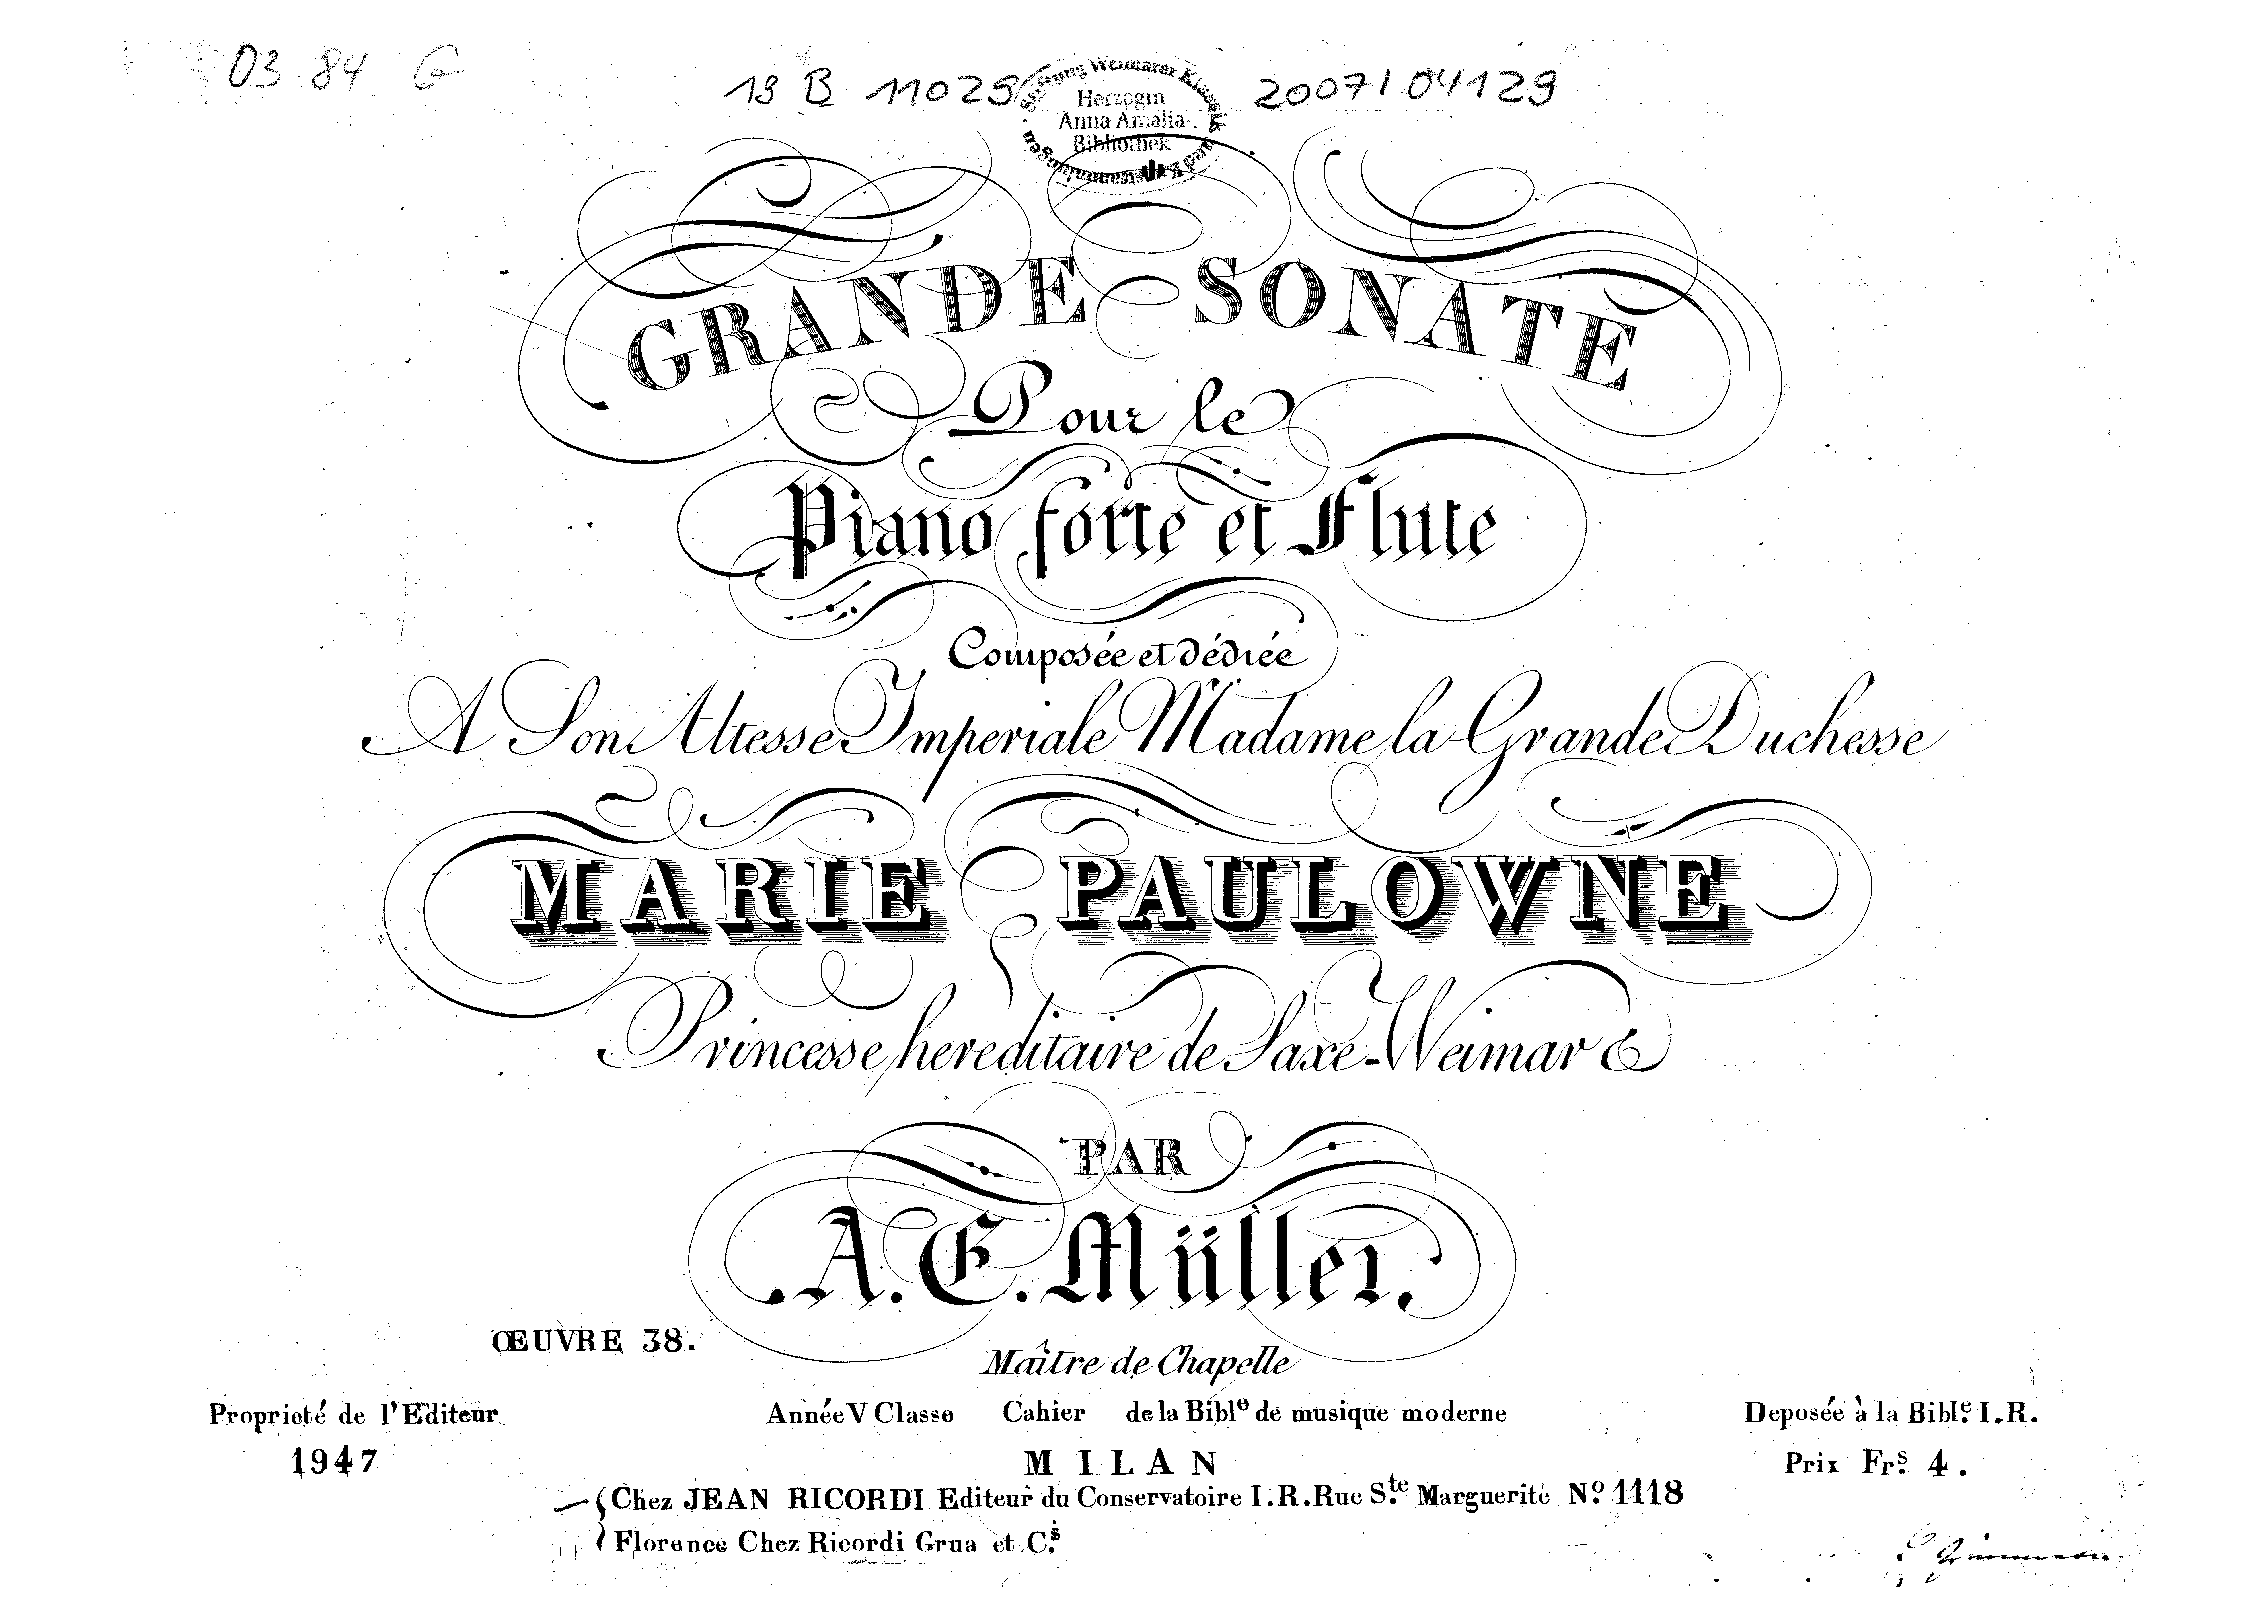 03 84 G
13 B 11029
2007 / 04129
Stiftung Weimarer Klassik
Herzogin
Anna Amalia
Bibliothek
und Kunstsammlungen
GRANDE SONATE
Pour le
Piano forte et Flute
Composée et dédiée
A Son Altesse Imperiale Madame la Grande Duchesse
MARIE PAULOWNE
Princesse hereditaire de Saxe-Weimar &
PAR
A. E. Müller.
ŒUVRE 38.
Maître de Chapelle
Proprieté de l'Editeur Année V Classe Cahier de la Bibl.e de musique moderne Deposée à la Bibl.e I.R.
1947 MILAN Prix Fr.s 4.
Chez JEAN RICORDI Editeur du Conservatoire I.R. Rue S.te Marguerite N.o 1118
Florence Chez Ricordi Grua et C.s